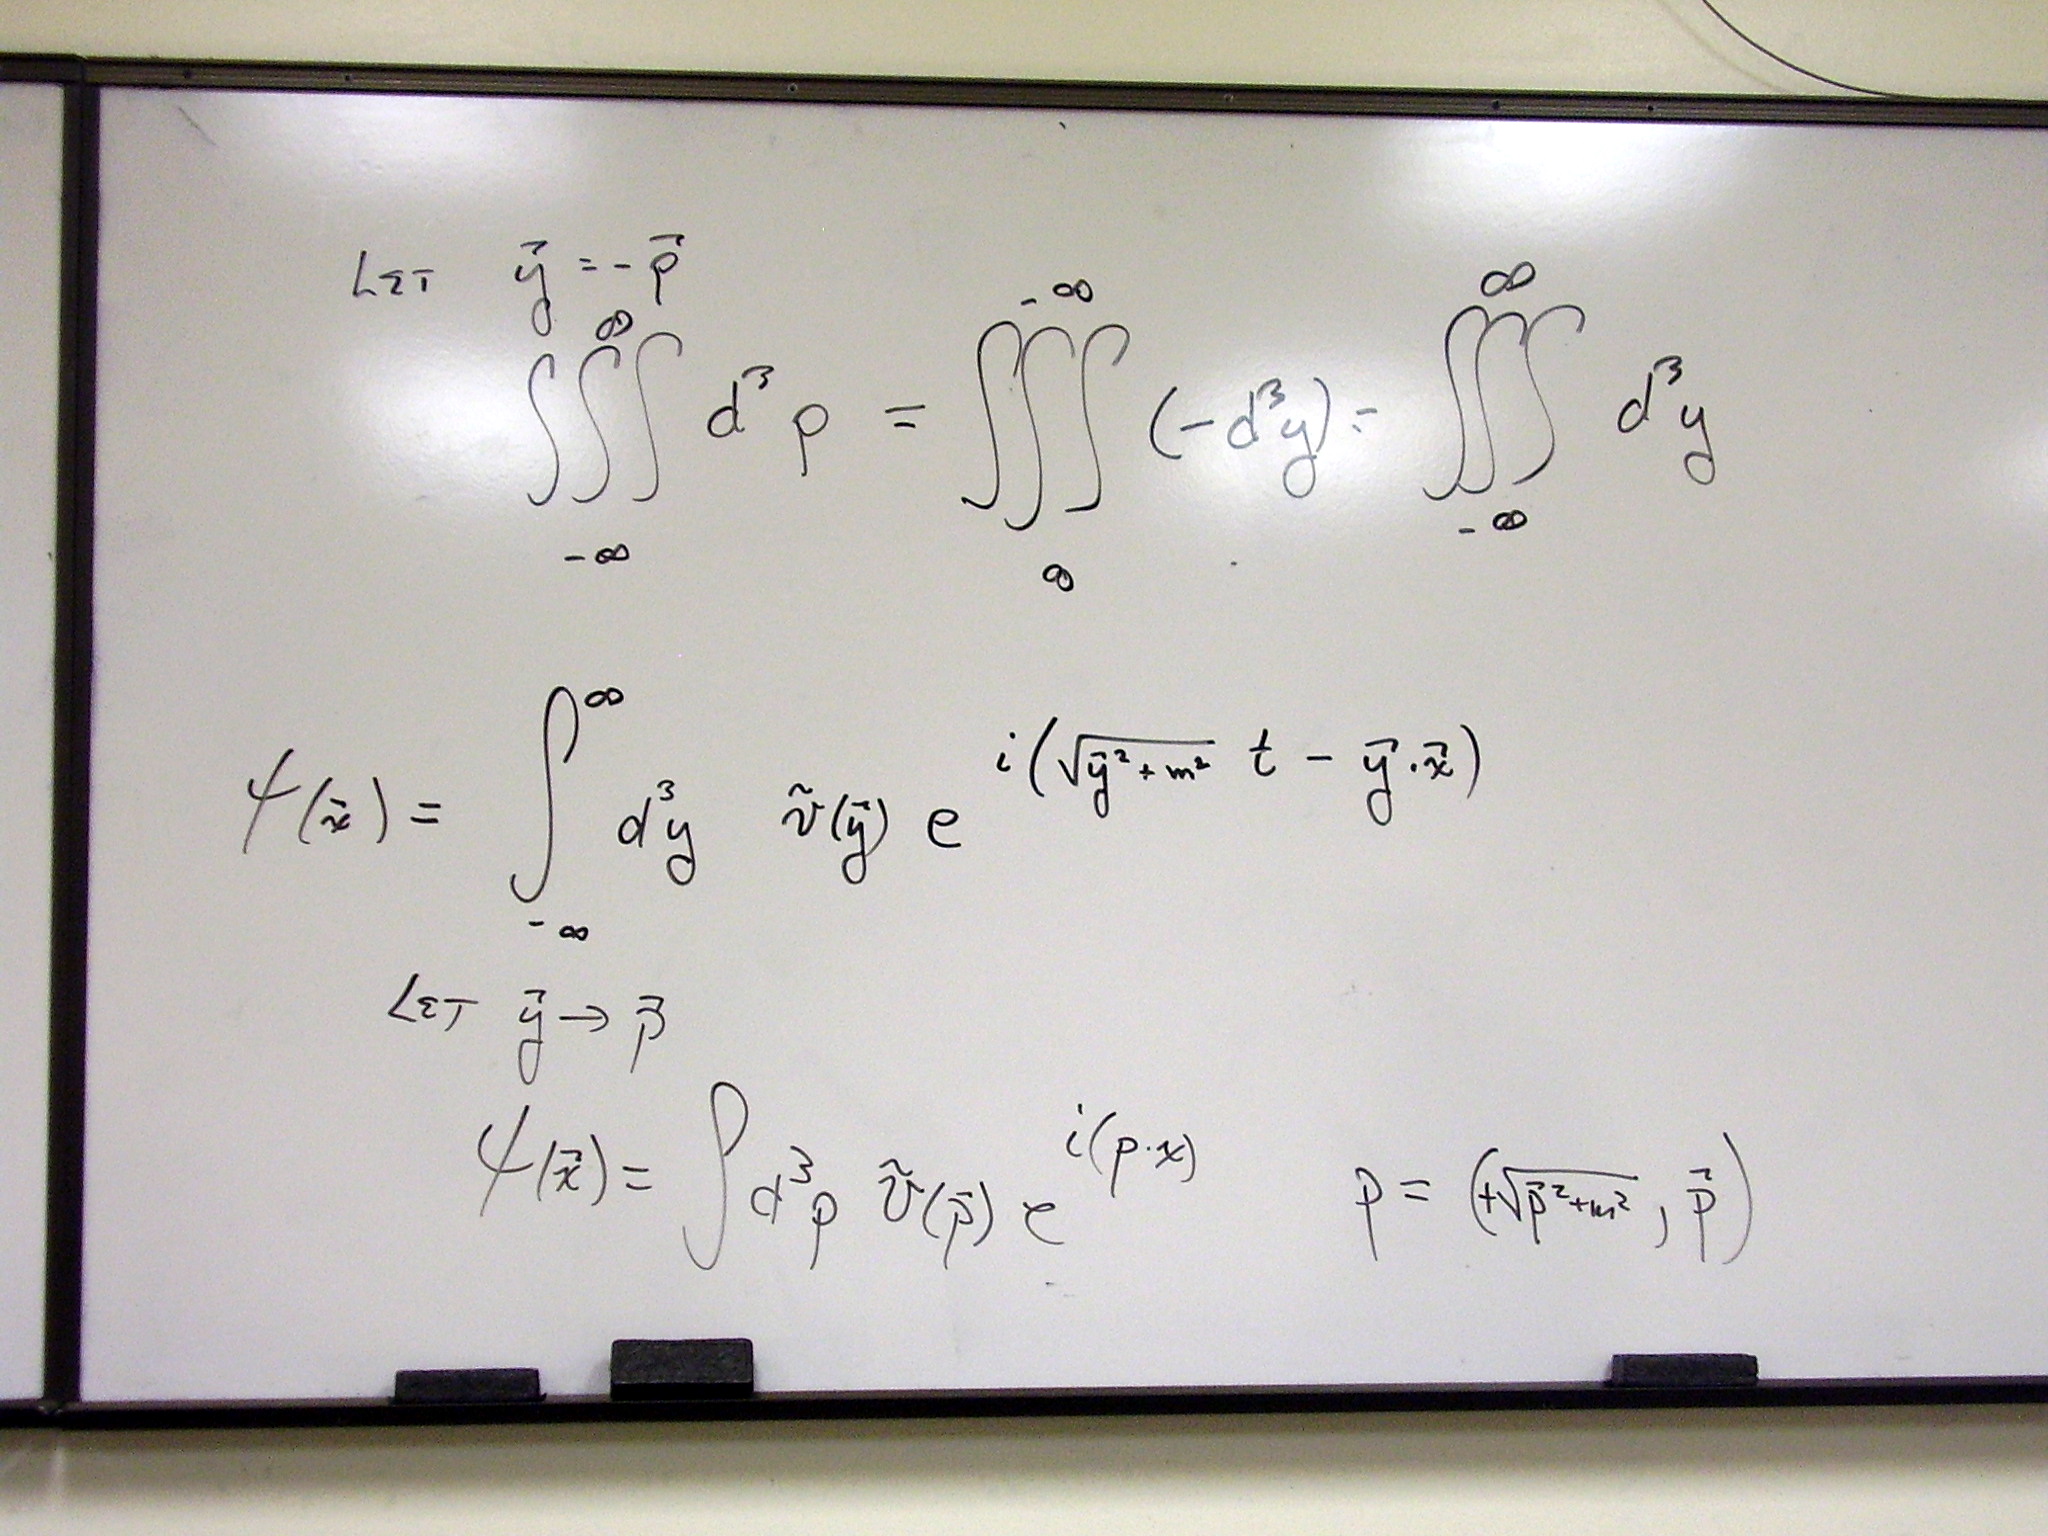 LET y⃗ = - p⃗
∫∫∫_{-∞}^{∞} d³p = ∫∫∫_{∞}^{-∞} (-d³y) = ∫∫∫_{-∞}^{∞} d³y
ψ(x⃗) = ∫_{-∞}^{∞} d³y ṽ(y⃗) e^{i(√(y⃗²+m²) t - y⃗·x⃗)}
LET y⃗ → p⃗
ψ(x⃗) = ∫ d³p ṽ(p⃗) e^{i(p·x)} p = (+√(p⃗²+m²), p⃗)